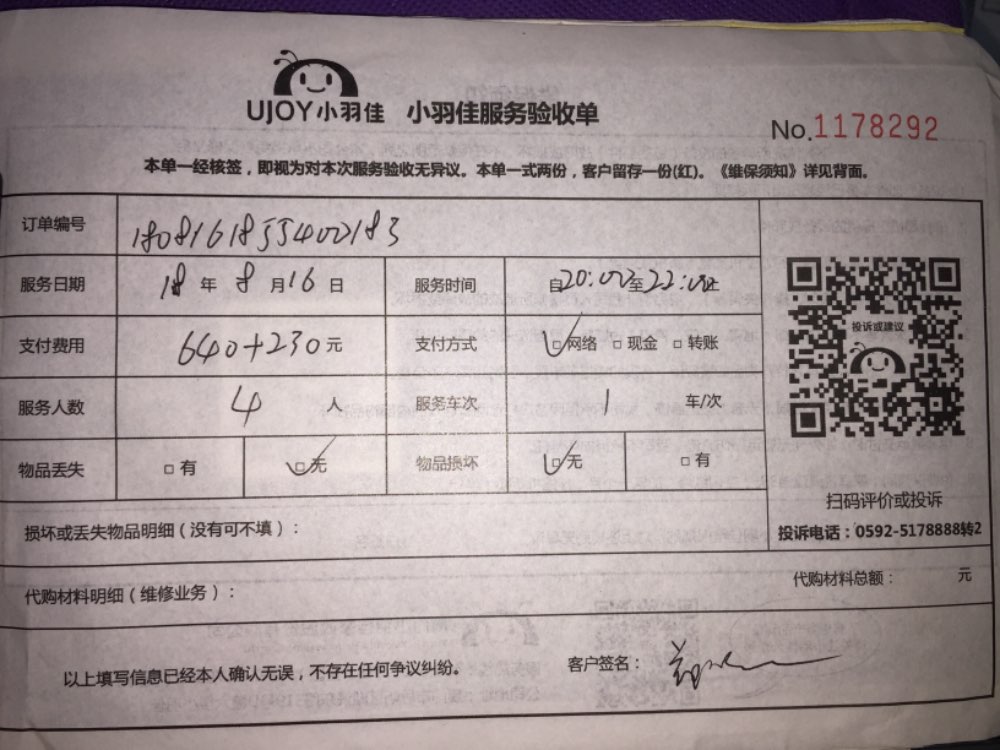 UJOY小羽佳 小羽佳服务验收单
No.1178292
本单一经核签，即视为对本次服务验收无异议。本单一式两份，客户留存一份(红)。《维保须知》详见背面。
订单编号 180816185540​0183
服务日期 18 年 8 月 16 日 服务时间 自20:00至22:00止
支付费用 640+230元 支付方式 ☑网络 □现金 □转账
服务人数 4 人 服务车次 1 车/次
物品丢失 □有 ☑无 物品损坏 ☑无 □有
投诉或建议
扫码评价或投诉
投诉电话：0592-5178888转2
损坏或丢失物品明细（没有可不填）：
代购材料明细（维修业务）： 代购材料总额： 元
以上填写信息已经本人确认无误，不存在任何争议纠纷。 客户签名：